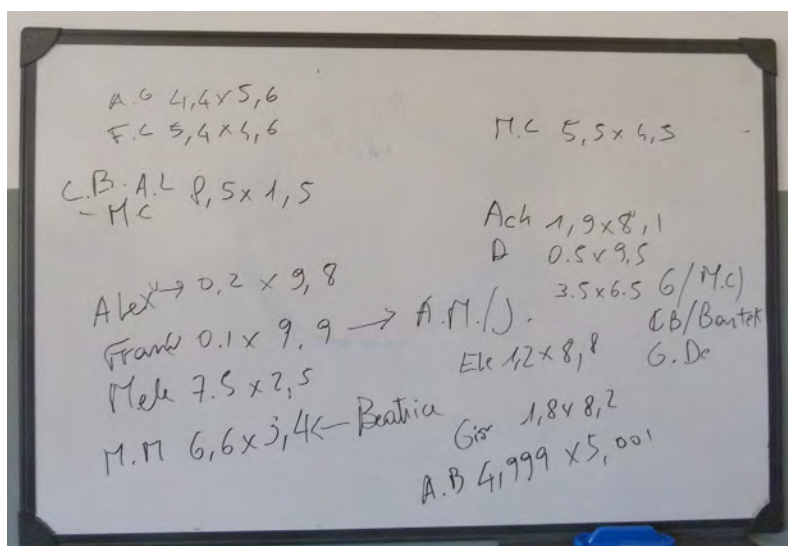 A.G 4,4 x 5,6
F.C 5,4 x 4,6
C.B. A.L 8,5 x 1,5
- M C
Alex → 0,2 x 9,8
0.1 x 9.9 → A.M./J.
Mele 7.5 x 2,5
M.M 6,6 x 3,4 ← Beatrice
M.C 5,5 x 4,5
Ach 1,9 x 8,1
D 0.5 x 9,5
3.5 x 6.5 G/M.C)
CB/Bartek
G. De
Ele 1,2 x 8,8
Gis 1,8 x 8,2
A.B 4,999 x 5,001